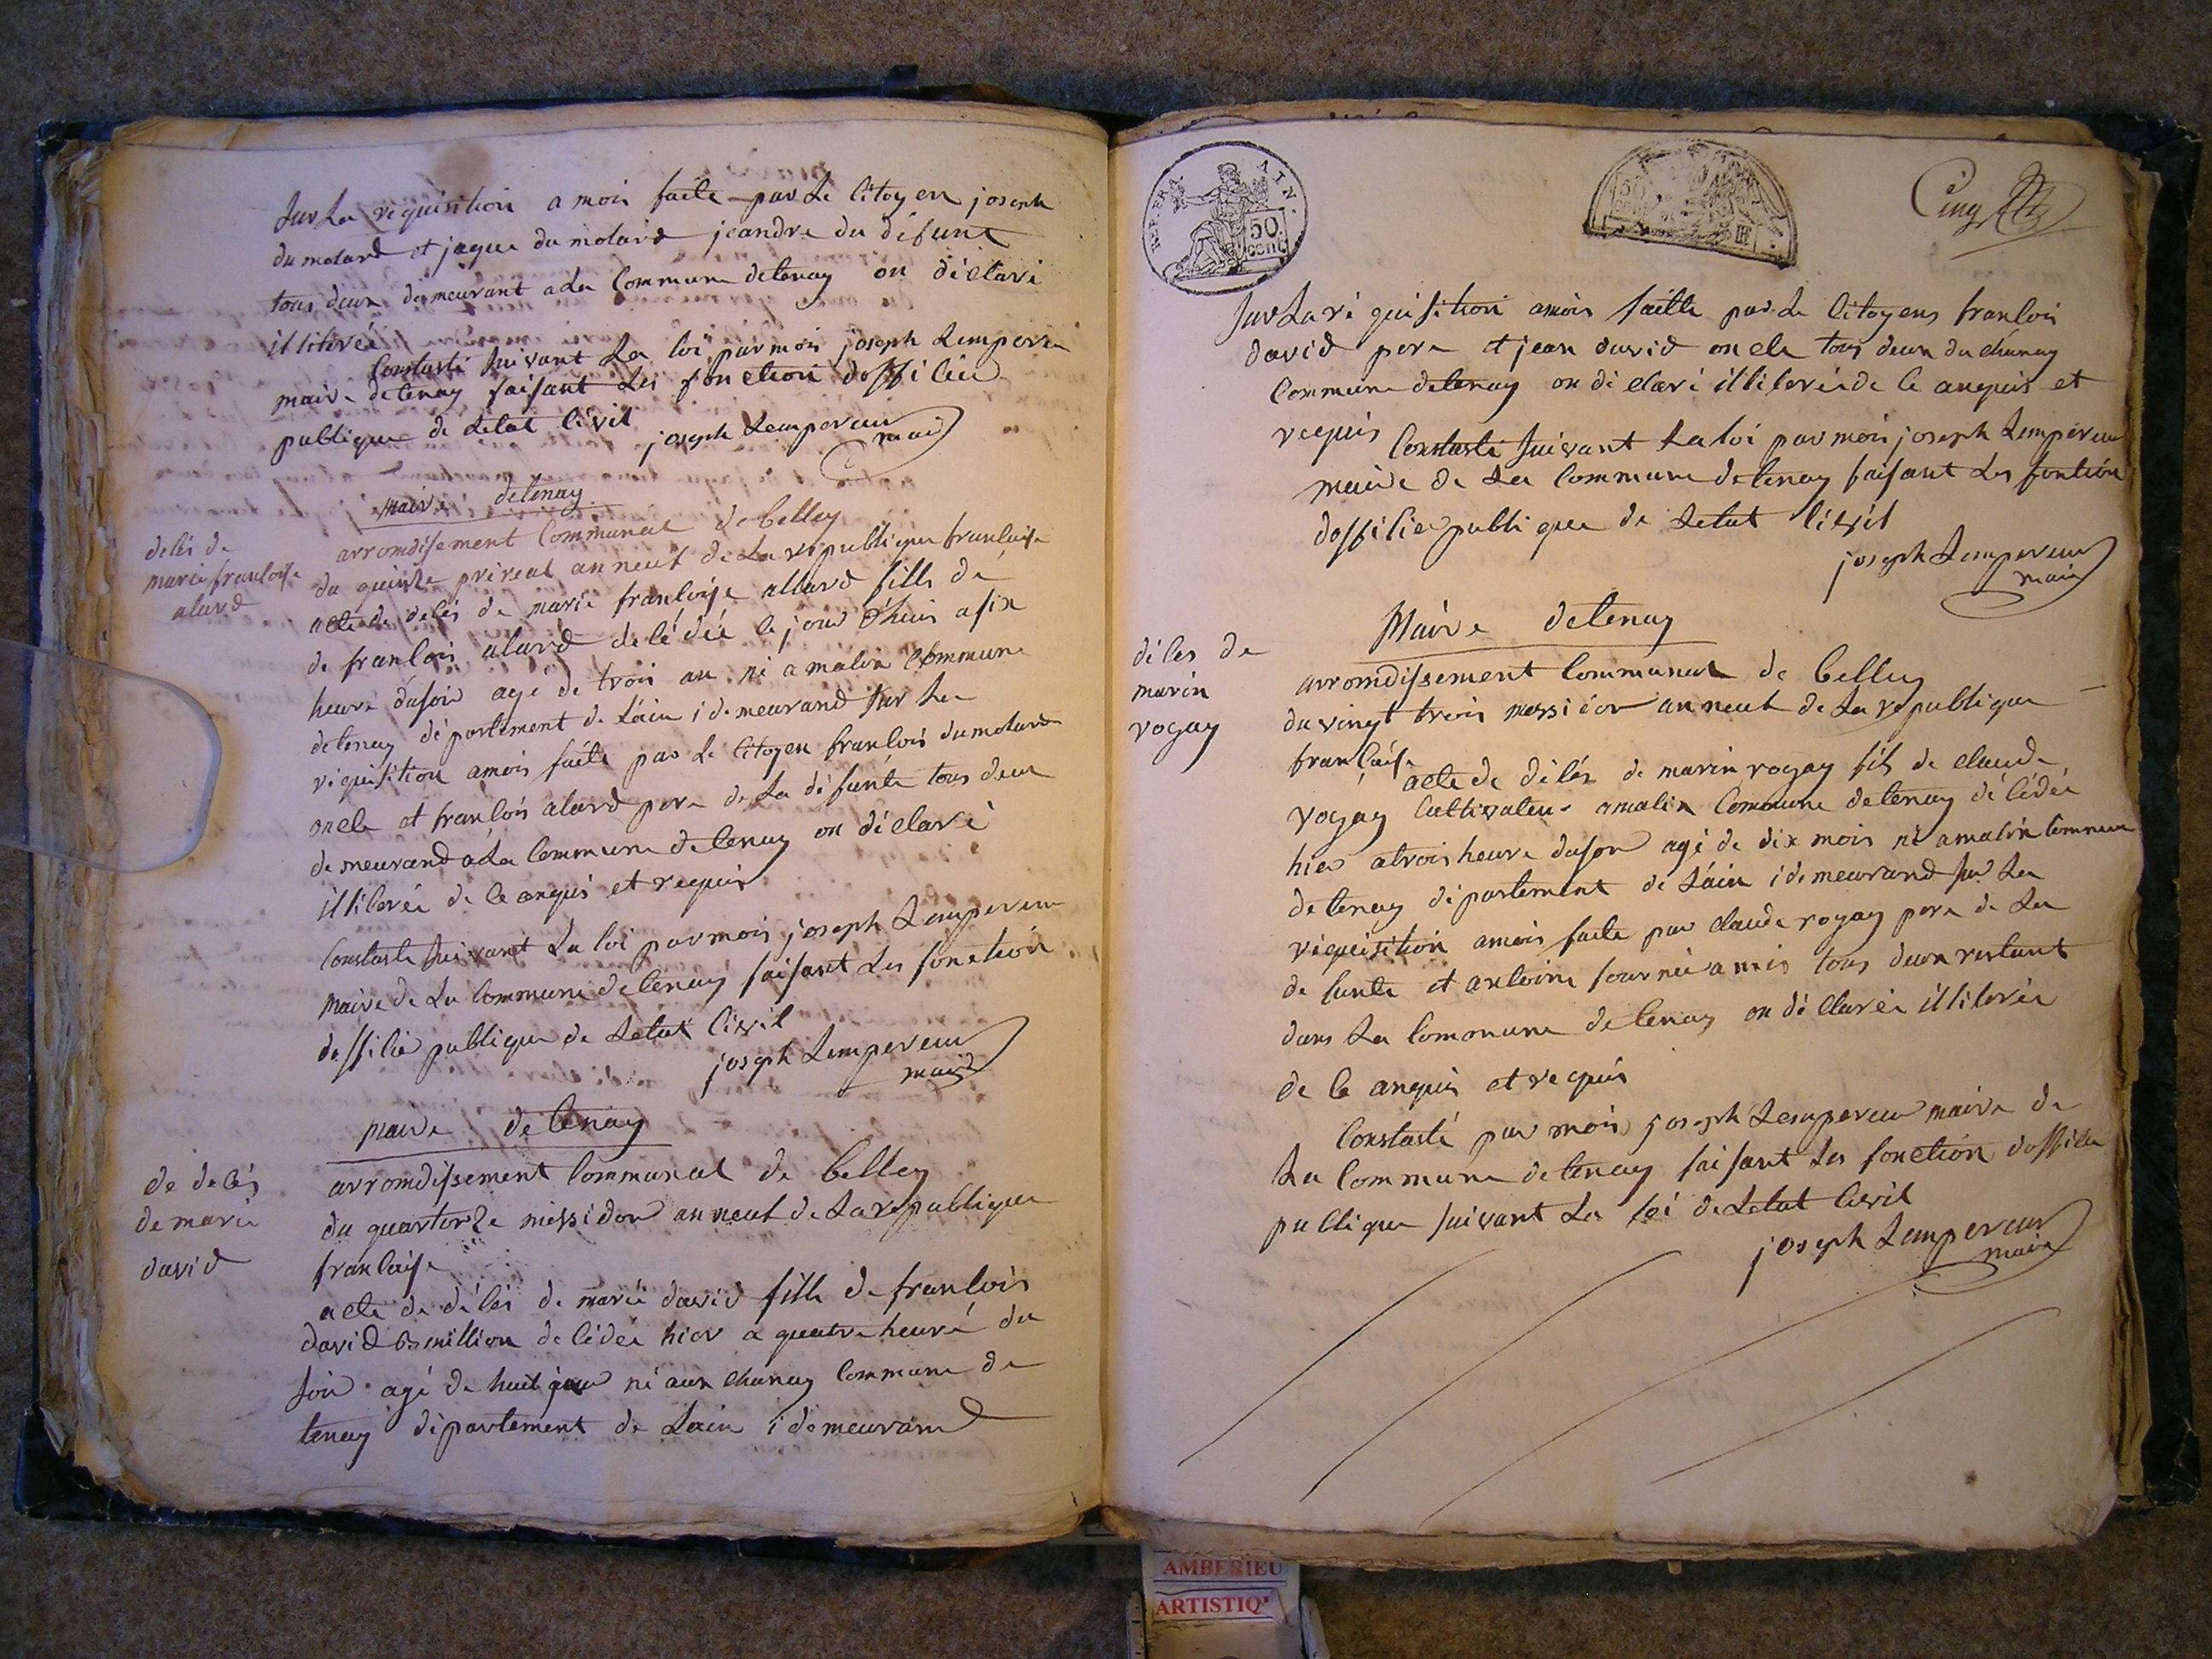 Sur La requisition a moi faite par Le Citoyen joseph
du molard et jaque du molard jeandre du défunt
tous deux demeurant a La Commune detenay on déclaré
illitéré
Constasté suivant La loi par mois joseph Lempereur
maire de tenay faisant Les fonction doffilié
publique de Letat Civil
joseph Lempereur
maire
maire detenay
arromdisement Communal de belley
delés de
marie françoise
alard
du quinze prireal an neuf de La republique françaisse
acte de delés de marie françoise allard fille de
de françois alard delédée le jour dhuis a six
heure dusoir agé de trois an né a malix Commune
detenay département de Láin i demeurand sur La
requisition amois faite par Le Citoyen françois dumolard
oncle et françois alard pere de La defunte tous deux
demeurand a La Commune de tenay on déclaré
illiterée de le anquis et requis
Constasté suivant La loi par mois joseph Lempereur
maire de La Commune detenay faisant Les fonction
doffilié publique de Letat Civil
joseph Lempereur
maire
maire detenay
arromdissement Communal de belley
de delés
de marie
david
du quartorze messidor an neuf de La republique
française
acte de délés de marie david fille de françois
david delédée hier a quatre heuré du
soir agé de huit jour né aux chanay Commune de
tenay département de Lain i demeurand
REP. FRA. AIN.
50
cent
Cinq
Sur La réquisition amois faitte par Le Citoyens françois
david pere et jean david oncle tous deux du chanay
Commune detenay on déclaré illiterée de le anquis et
requis
Constasté suivant La loi par mois joseph Lempereur
maire de La Commune detenay faisant Les fontion
doffilié publique de Letat Civil
joseph Lempereur
maire
Maire detenay
arromdissement Communal de belley
déles de
marin
rogay
du vingt trois messidor an neuf de La republique
française
acte de délés de marin rogay fils de claude
rogay Cultivateur amalix Commune detenay délédée
hier atrois heure dusoir agé de dix mois né amalix Commune
detenay département de Láin i demeurand sur La
réquisition amois faite par claude rogay pere de La
defunte et antoine fournié amis tous deux restant
dans La Commune detenay on déclarée illiterée
de le anquis et requis
Constasté par mois joseph Lempereur maire de
La Commune detenay faisant Les fonction doffilié
publique suivant La loi de Letat Civil
joseph Lempereur
maire
AMBERIEU
ARTISTIQ'